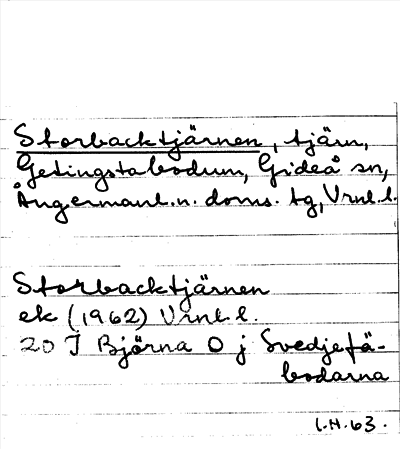 Storbacktjärnen, tjärn,
Getingstabodum, Gideå sn,
Ångermanl.n. doms. tg, Vrnl.l.
Storbacktjärnen
ek (1962) Vrnl.l.
20 J Björna O j Svedjefä-
bodarna
L.H.63.